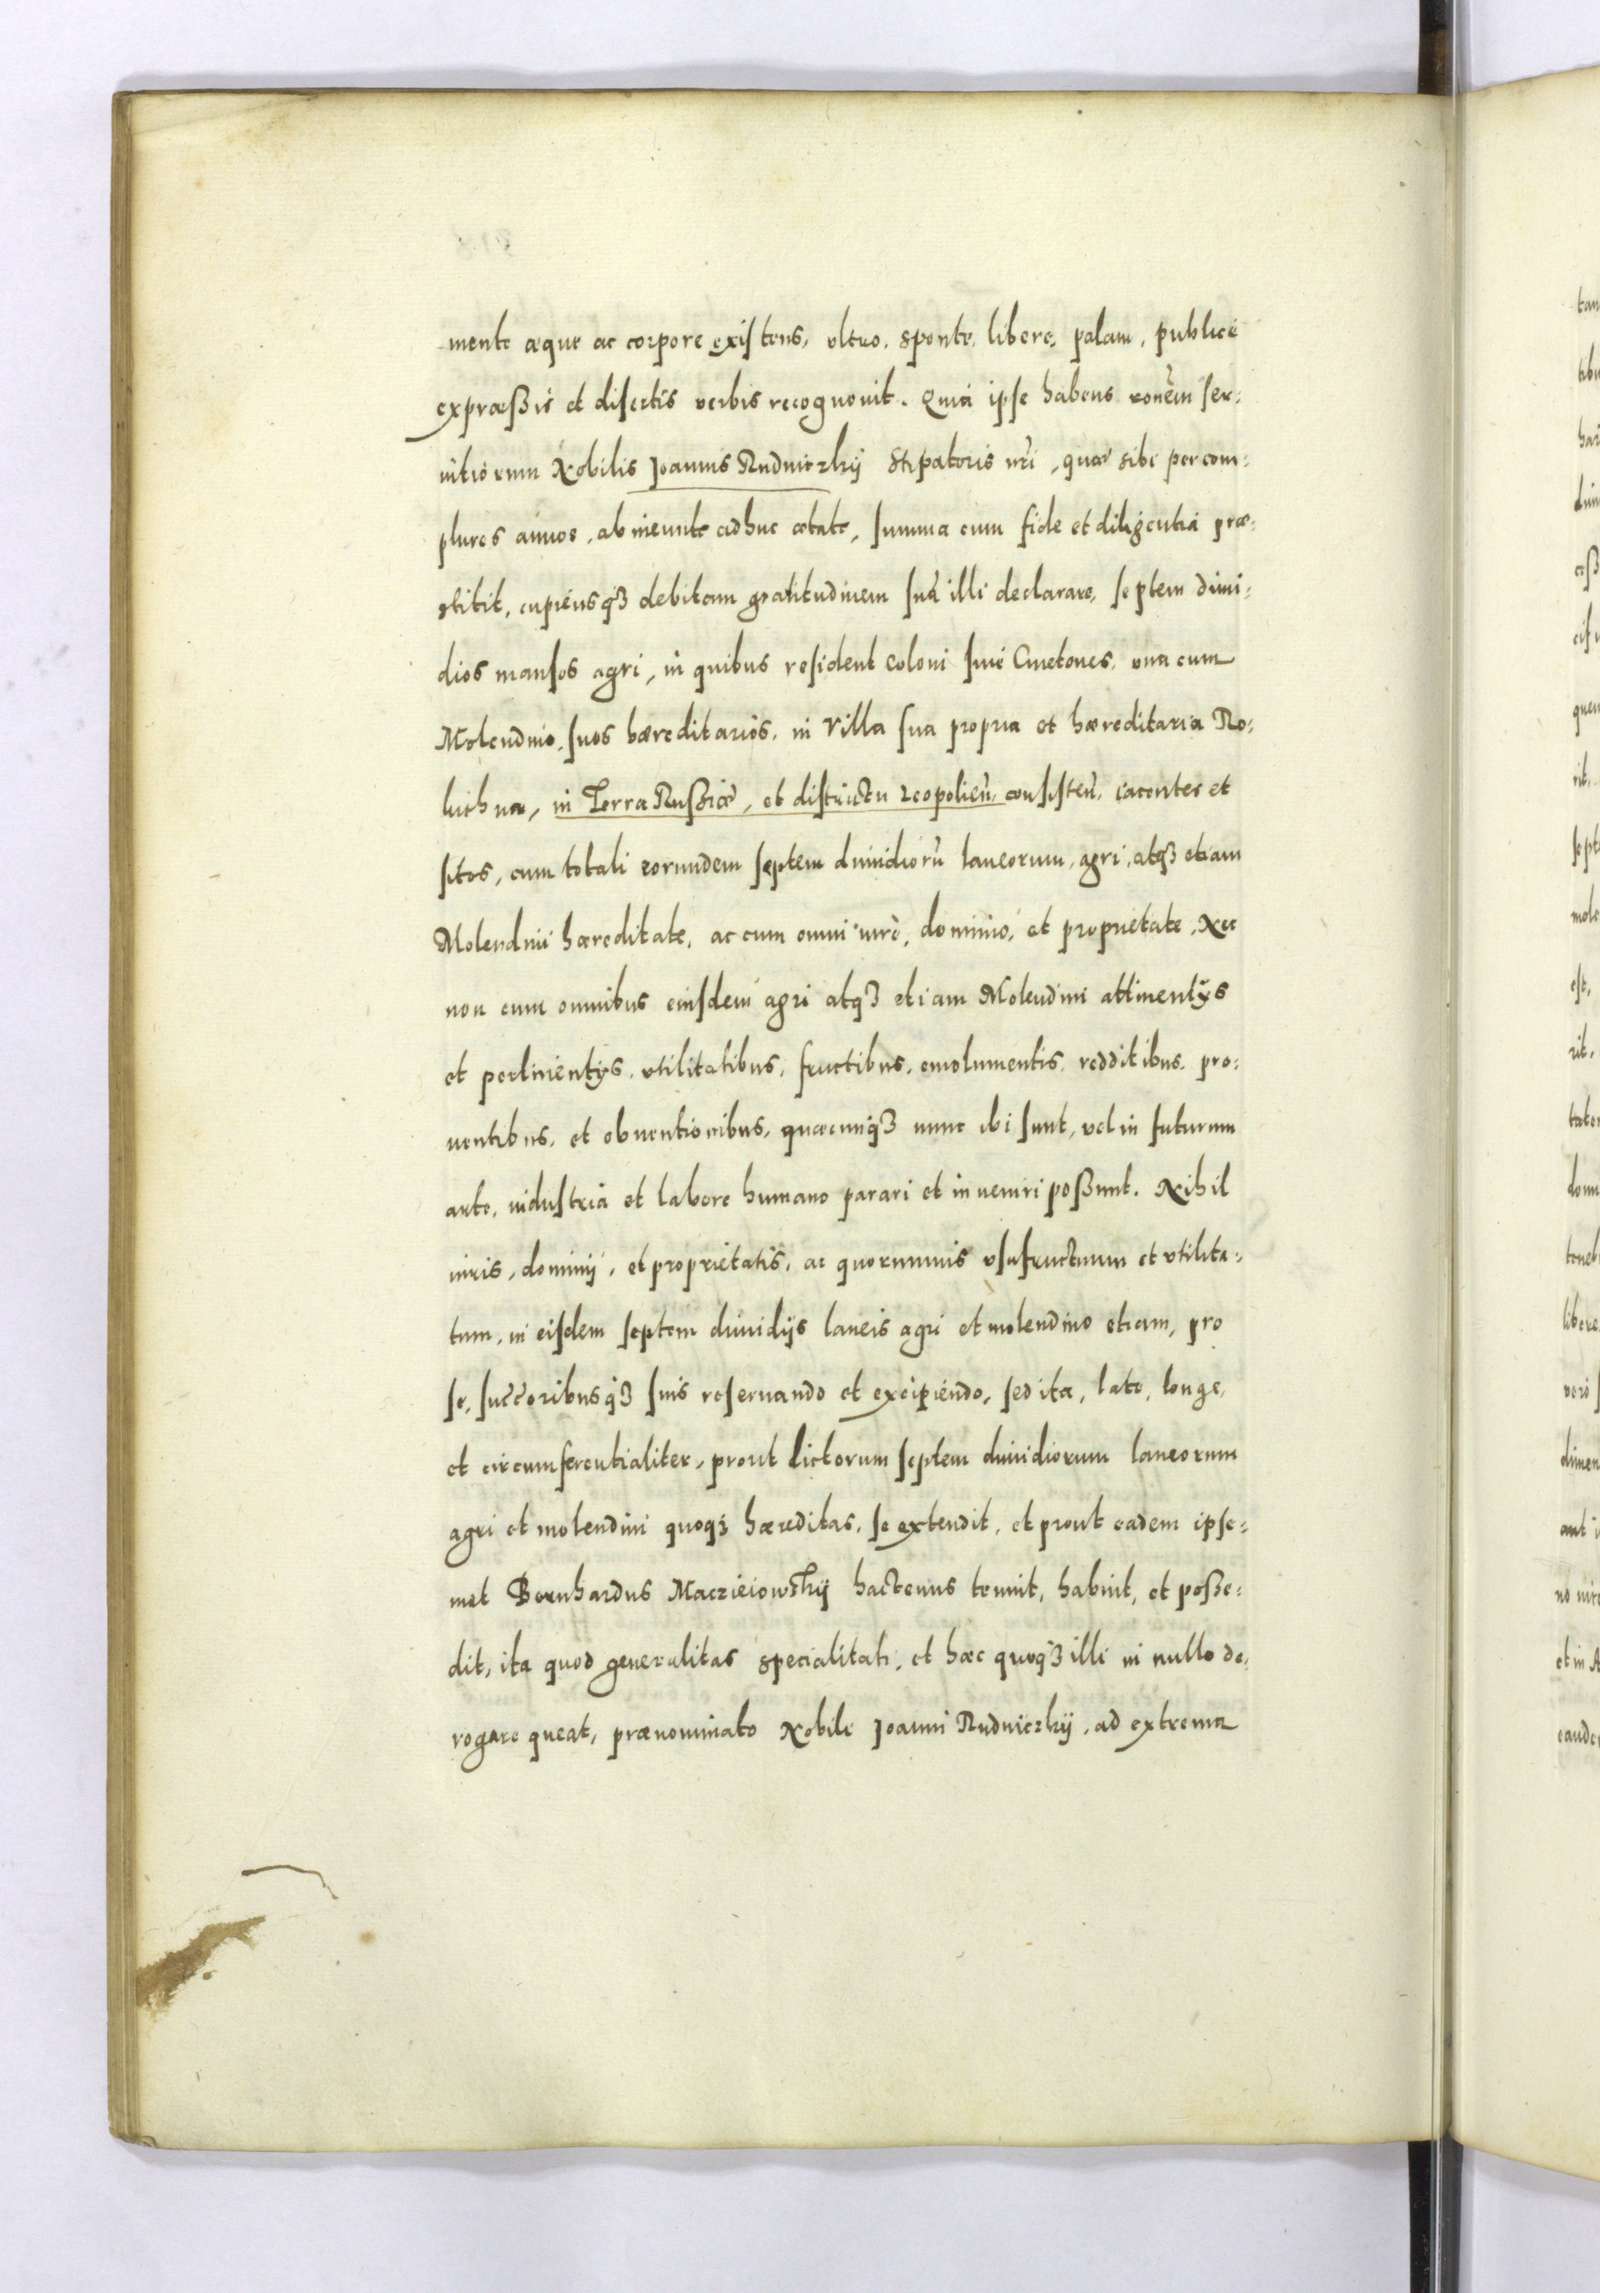 mente æque ac corpore existens, vltro, sponte, libere, palam, publice
expræßis et disertis verbis recognouit. Quia ipse habens ronem ser:
uitiorum Nobilis Joannis Rudniczkij Stipatoris nri, quæ sibi per com:
plures annos, ab ineunte adhuc ætate, summa cum fide et diligentia præ:
stitit, cupiensq3 debitam gratitudinem suã illi declarare, septem dimi:
dios mansos agri, in quibus resident coloni siue Cmetones, vna cum
Molendino, suos hæreditarios, in Villa sua propria et hæreditaria Ro:
luchna, in Terra Russiæ, et districtu Leopolien̄, consisten̄, iacentes et
sitos, cum totali eorundem septem dimidiorũ laneorum, agri, atq3 etiam
Molendini hæreditate, ac cum omni iure, dominio, et proprietate, Nec
non cum omnibus eiusdem agri atq3 etiam Molendini attinentijs
et pertinentijs, vtilitatibus, fructibus, emolumentis, redditibus, pro:
uentibus, et obuentionibus, quæcunq3 nunc ibi sunt, vel in futurum
arte, industria et labore humano parari et inueniri poßunt. Nihil
iuris, dominij, et proprietatis, ac quorumuis vsufructuum et vtilita:
tum, in eisdem septem dimidijs laneis agri et molendino etiam, pro
se, succeoribusq3 suis reseruando et excipiendo, sed ita, late, longe,
et circumferentialiter, prout dictorum septem dimidiorum laneorum
agri et molendini quoq3 hæreditas, se extendit, et prout eadem ipse:
met Bernhardus Maczieiowskij hactenus tenuit, habuit, et poße:
dit, ita quod generalitas specialitati, et hæc quoq3 illi in nullo de:
rogare queat, prænominato Nobili Joanni Rudniczkij, ad extrema